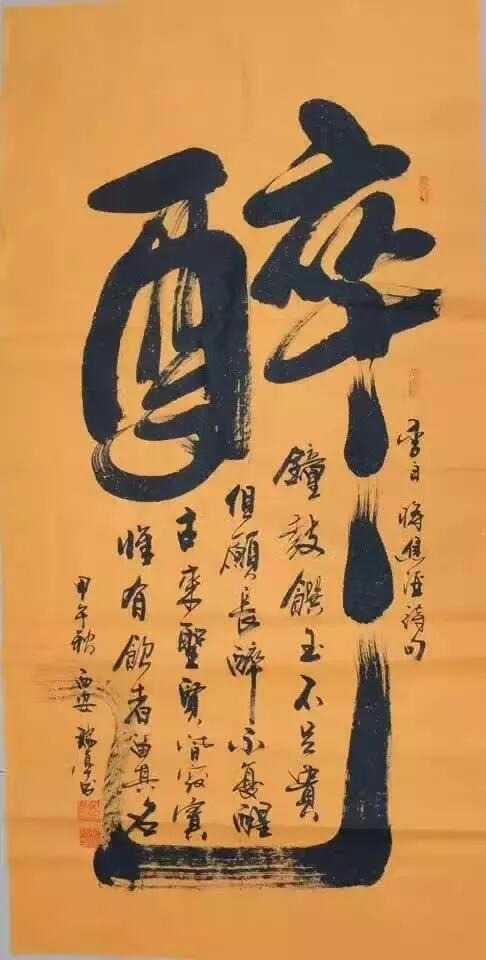 醉
李白將進酒詩句
鐘鼓饌玉不足貴
但願長醉不復醒
古來聖賢皆寂寞
惟有飲者留其名
甲午秋 西安